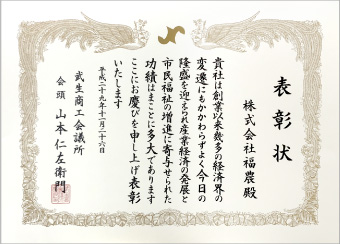 表彰状
株式会社福農殿
貴社は創業以来幾多の経済界の
変遷にもかかわらずよく今日の
隆盛を迎えられ産業経済の発展と
市民福祉の増進に寄与せられた
功績はまことに多大であります
ここにお慶びを申し上げ表彰
いたします
平成二十九年十一月二十六日
武生商工会議所
会頭 山本仁左衛門